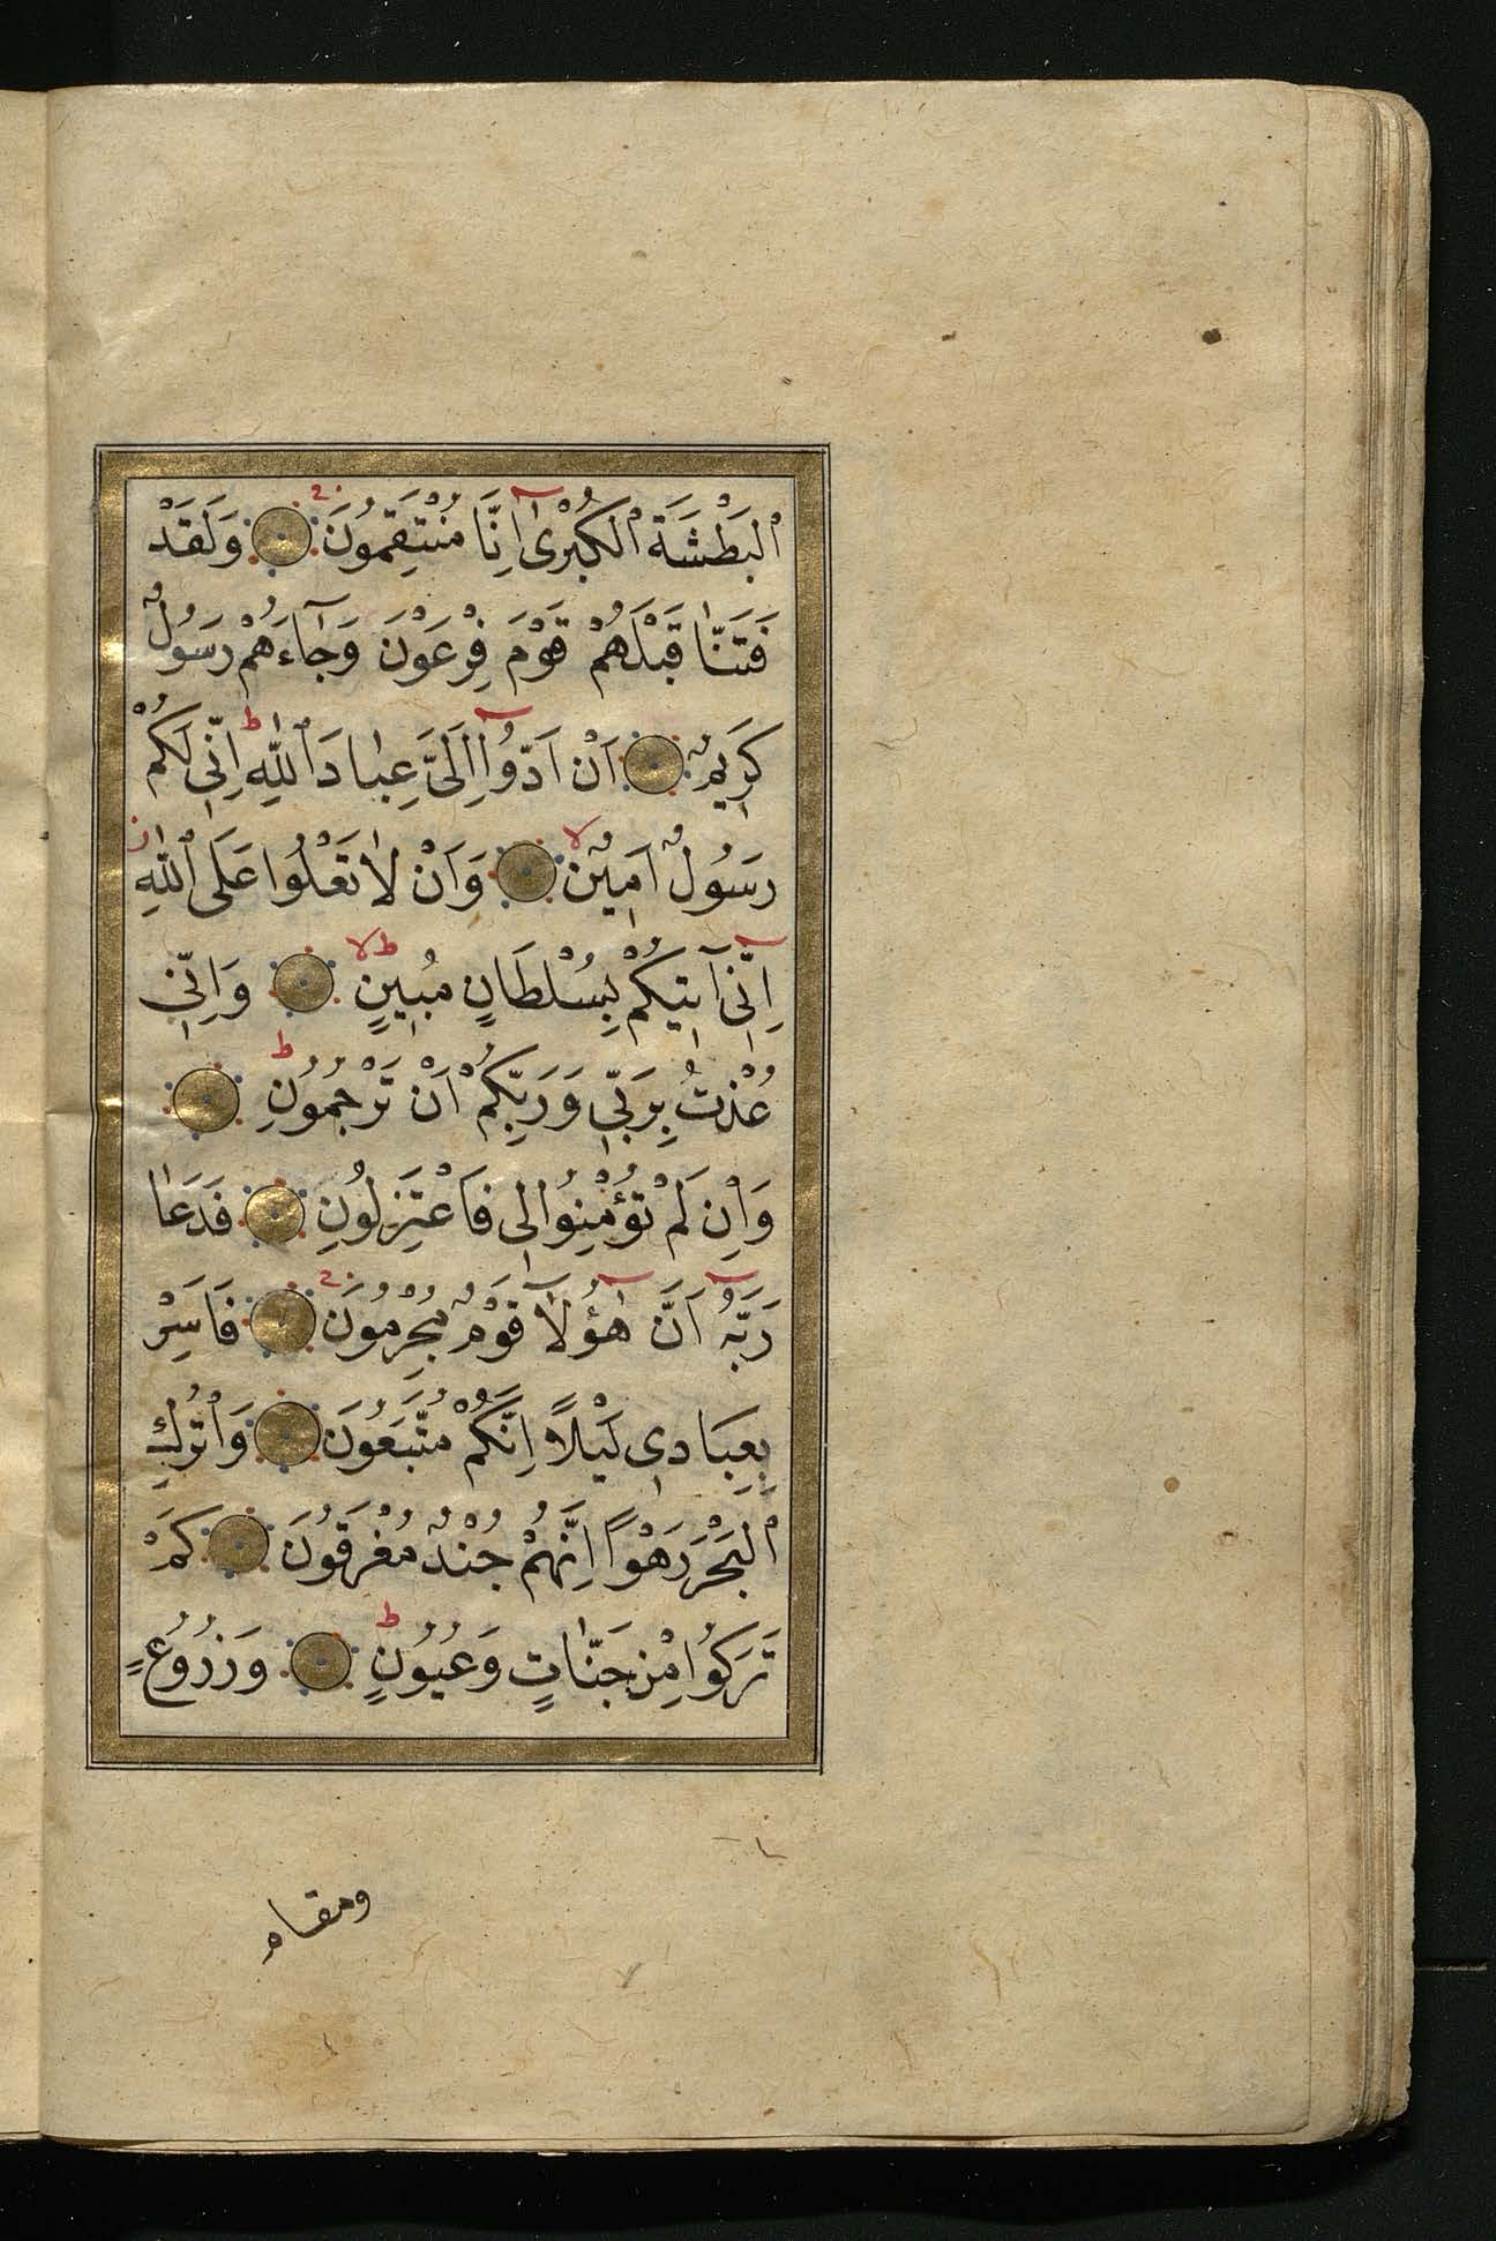 الْبَطْشَةَ الْكُبْرٰى اِنَّا مُنْتَقِمُونَ وَلَقَدْ
فَتَنَّا قَبْلَهُمْ قَوْمَ فِرْعَوْنَ وَجَٓاءَهُمْ رَسُولٌ
كَرِيمٌ اَنْ اَدُّٓوا اِلَيَّ عِبَادَ اللّٰهِ اِنِّي لَكُمْ
رَسُولٌ اَمِينٌ وَاَنْ لَا تَعْلُوا عَلَى اللّٰهِ
اِنِّٓي اٰتِيكُمْ بِسُلْطَانٍ مُبِينٍ وَاِنِّي
عُذْتُ بِرَبِّي وَرَبِّكُمْ اَنْ تَرْجُمُونِ
وَاِنْ لَمْ تُؤْمِنُوا لِي فَاعْتَزِلُونِ فَدَعَا
رَبَّهُٓ اَنَّ هٰٓؤُلَٓا قَوْمٌ مُجْرِمُونَ فَاَسْرِ
بِعِبَادِي لَيْلًا اِنَّكُمْ مُتَّبَعُونَ وَاتْرُكِ
الْبَحْرَ رَهْوًا اِنَّهُمْ جُنْدٌ مُغْرَقُونَ كَمْ
تَرَكُوا مِنْ جَنَّاتٍ وَعُيُونٍ وَزُرُوعٍ
ومقام